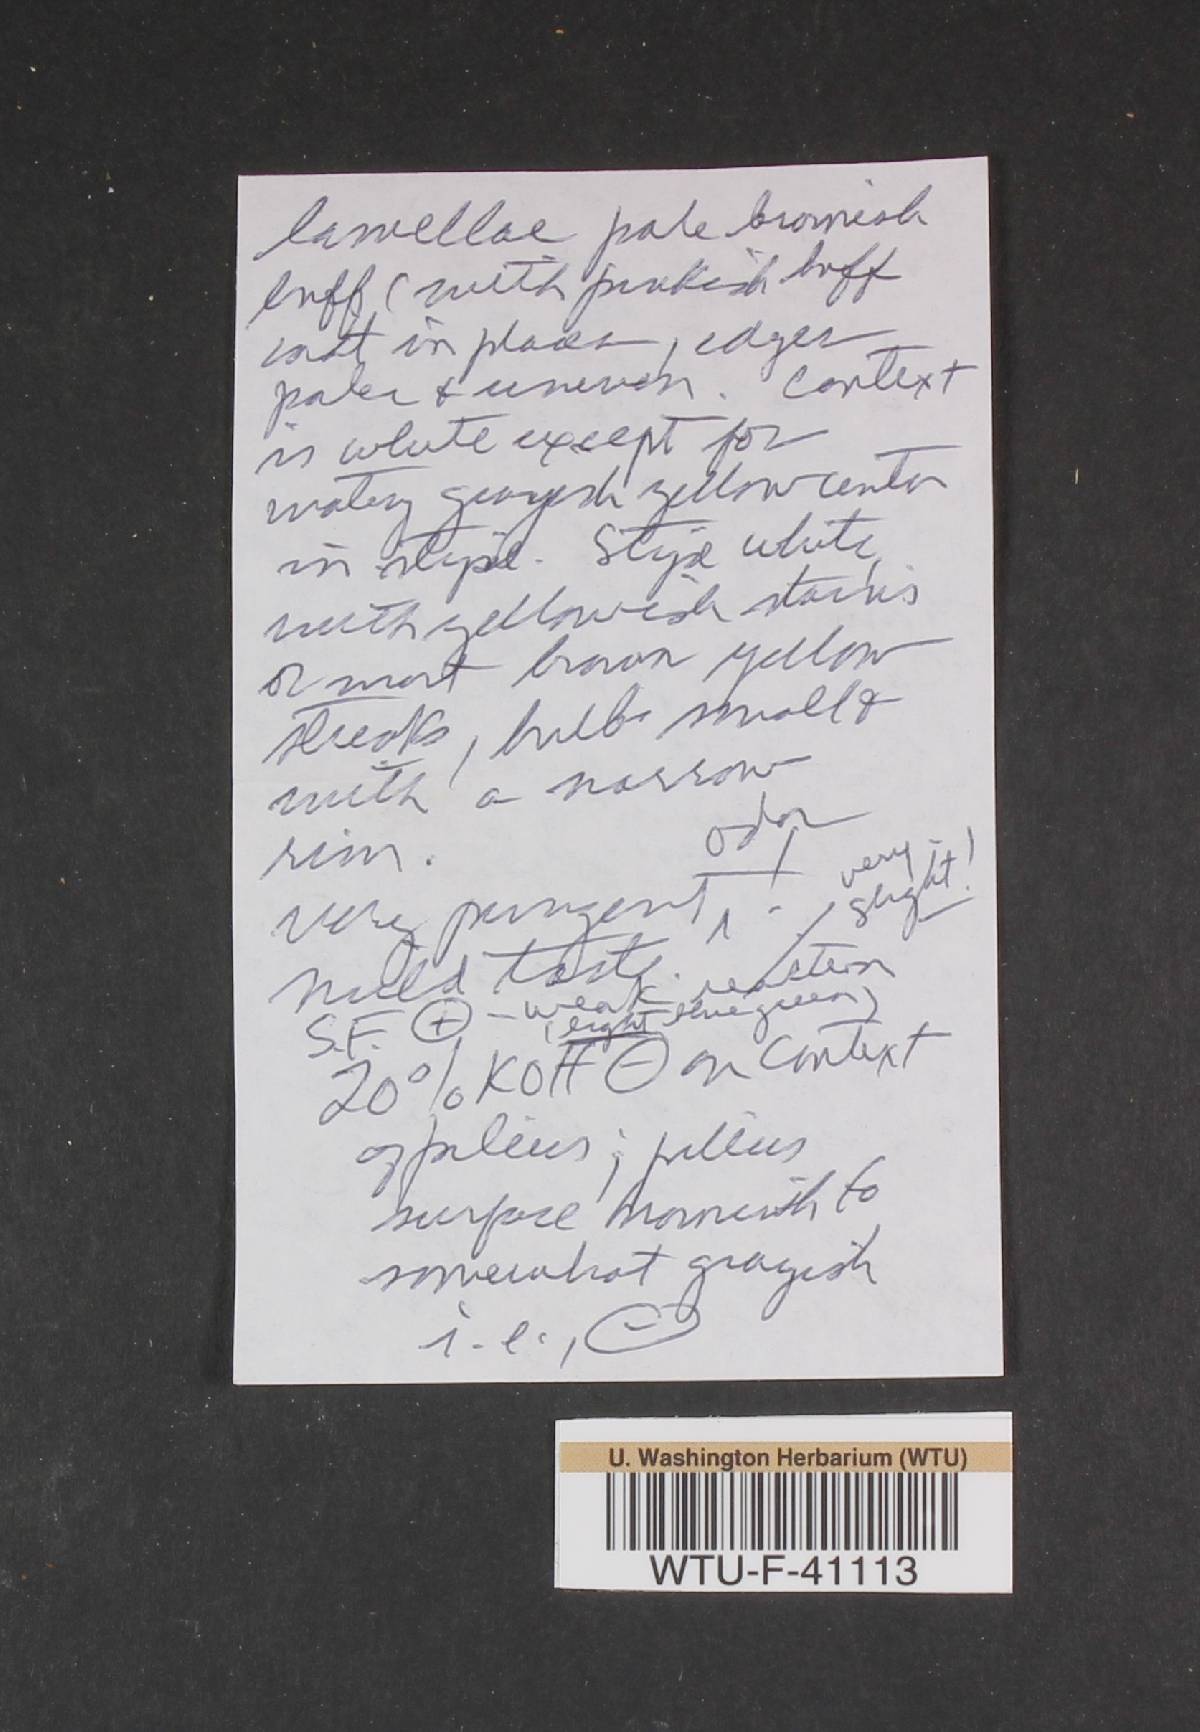 lamellae pale brownish
buff (with pinkish buff
cast in places, edges
paler & uneven. Context
is white except for
watery grayish yellow center
in stipe. Stipe white,
with yellowish stains
or most brown yellow
streaks, bulb small &
with a narrow
rim.
odor
very pungent, -
very slight!
mild taste.
S.F. ⊕ - weak reaction
(light blue green)
20% KOH ⊖ on context
of pileus; pileus
surface brownish to
somewhat grayish
i.e., ⊖
U. Washington Herbarium (WTU)
WTU-F-41113